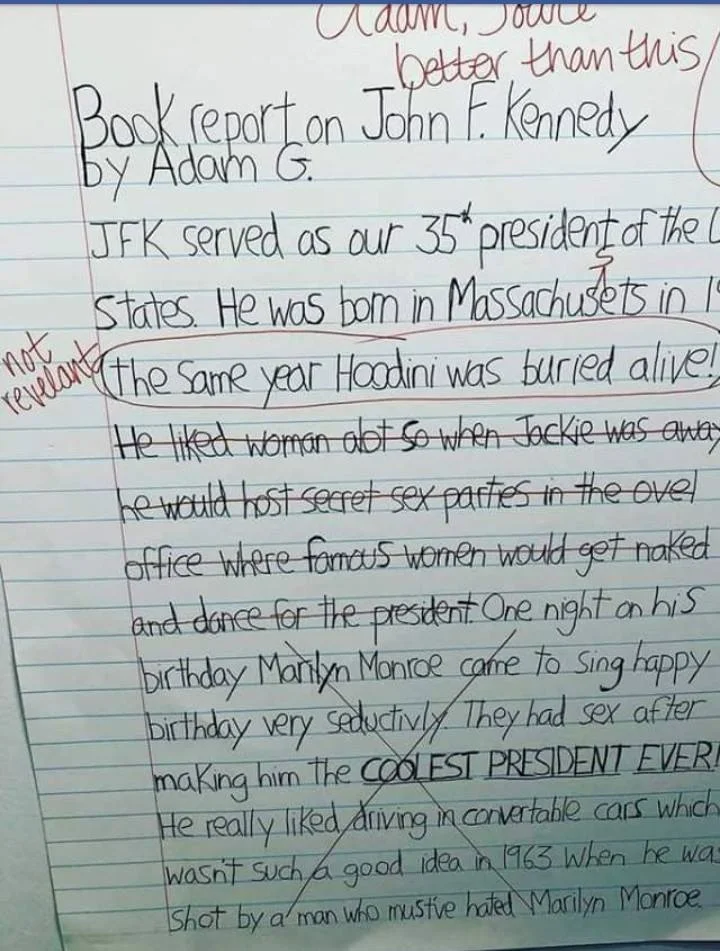 Adam, You're
better than this
Book report on John F. Kennedy
by Adam G.
JFK served as our 35th president of the
States. He was born in Massachusets in 19
s
not
revelant
(the same year Hoodini was buried alive!)
He liked woman alot so when Jackie was away
he would host secret sex parties in the ovel
office where famous women would get naked
and dance for the president. One night on his
birthday Marilyn Monroe came to sing happy
birthday very seductivly. They had sex after
making him the COOLEST PRESIDENT EVER!
He really liked driving in convertable cars which
wasn't such a good idea in 1963 when he was
shot by a man who mustive hated Marilyn Monroe.